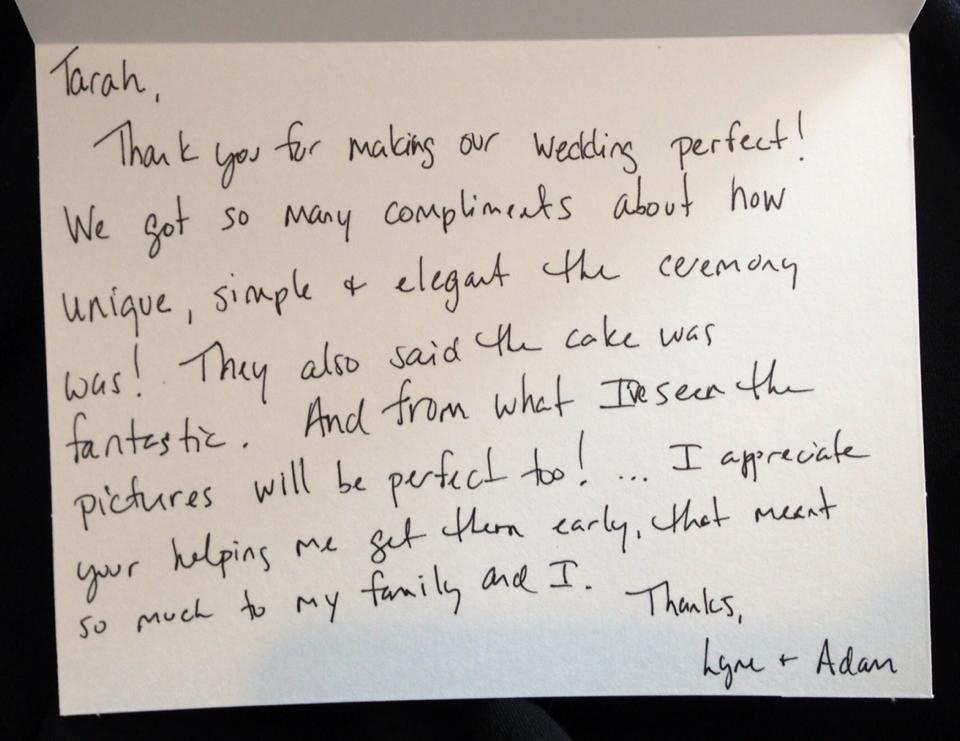 Tarah,
Thank you for making our wedding perfect!
We got so many compliments about how
unique, simple & elegant the ceremony
was! They also said the cake was
fantastic. And from what I've seen the
pictures will be perfect too! ... I appreciate
your helping me get them early, that meant
so much to my family and I.
Thanks,
Lyne + Adam